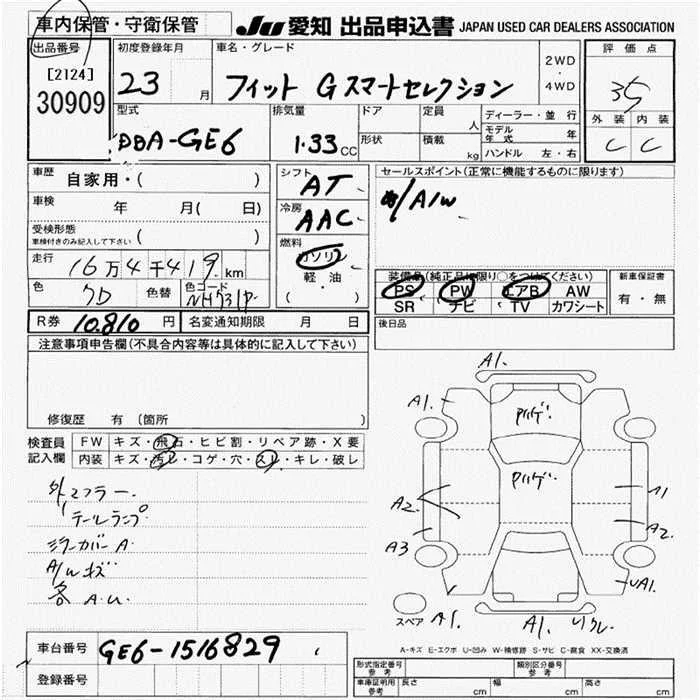 車内保管・守衛保管
JU 愛知 出品申込書 JAPAN USED CAR DEALERS ASSOCIATION
出品番号
[2124]
30909
初度登録年月
23 月
車名・グレード
フィット Gスマートセレクション
2WD
・
4WD
評価点
3.5
外装 内装
C C
型式
DBA-GE6
排気量
1.33 CC
ドア
形状
定員 人
積載 kg
ディーラー・並行
モデル年式 年
ハンドル 左・右
車歴 自家用・( )
車検 年 月( 日)
受検形態
車検付きのみ記入して下さい ( )
走行 16万4千419km
色 色替 色コード
NH731P
シフト
AT
冷房
AAC
燃料
ガソリン
・
軽油
( )
セールスポイント(正常に機能するものに限ります)
A/W
装備品(純正品に限り○をつけてください)
PS PW エアB AW
SR ナビ TV カワシート
新車保証書
有・無
R券 10,810 円 名変通知期限 月 日
後日品
注意事項申告欄(不具合内容等は具体的に記入して下さい)
修復歴 有 (箇所 )
検査員記入欄
FW キズ・飛石・ヒビ割・リペア跡・X要
内装 キズ・汚レ・コゲ・穴・スレ・キレ・破レ
外マフラー
〃テールランプ
ミラーカバー A
A/W キズ
各 A.U.
A1.
A1.
アリゲ
アリゲ
A2
A3
A1
A2.
UA1
スペア
A1.
A1. リクレ
車台番号 GE6-1516829
登録番号
A-キズ E-エクボ U-凹み W-補修跡 S-サビ C-腐食 XX-交換済
形式指定番号
参考
類別区分番号
参考
車庫証明用
参考
長さ cm 幅 cm 高さ cm